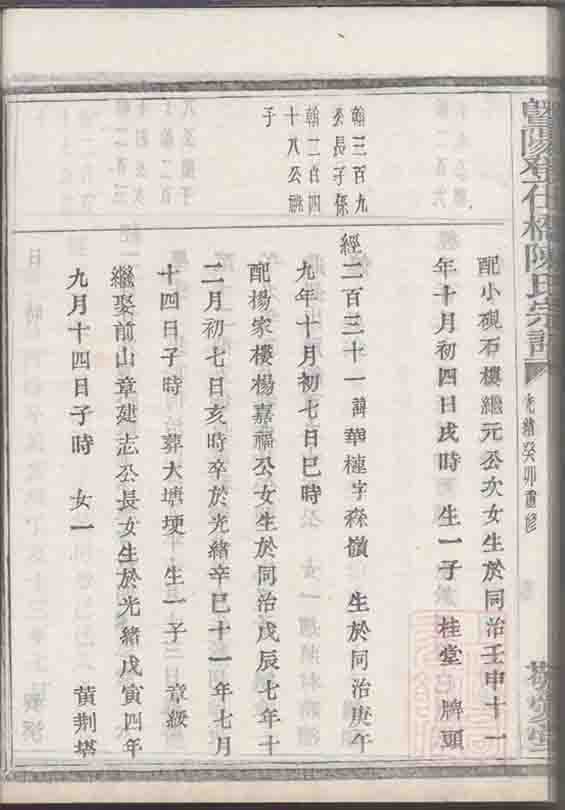 暨陽登仕橋陳氏宗譜
光緒癸卯重修
配小硯石樓繼元公次女生於同治壬申十一
年十月初四日戌時 生一子 桂堂 牌頭
翰三百九
公長子係
翰二百四
十八公祧
子
經二百三十一諱華槤字森嶺 生於同治庚午
九年十月初七日巳時
配楊家樓楊嘉福公女生於同治戊辰七年十
二月初七日亥時卒於光緒辛巳十一年七月
十四日子時 葬大塘埂 生一子 章綏
繼娶前山章建志公長女生於光緒戊寅四年
九月十四日子時 女一 黃荆塔